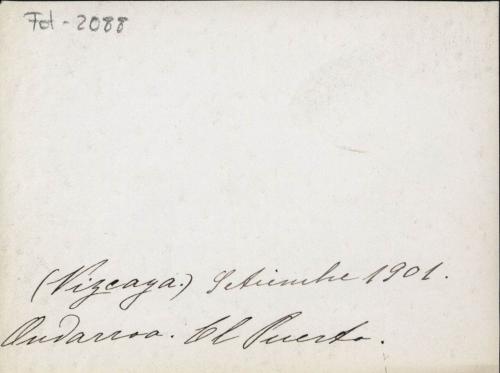 Fot-2088
(Vizcaya.) Setiembre 1901.
Ondarroa. El Puerto.